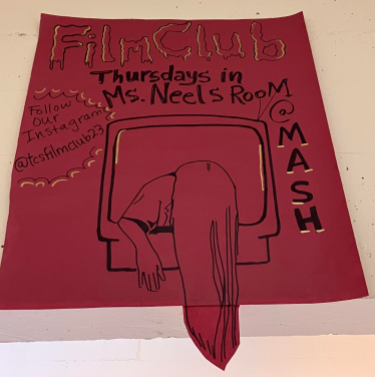 FilmClub
Thursdays in
Ms. Neels Room
@
MASH
Follow
our
Instagram
@tcsfilmclub23